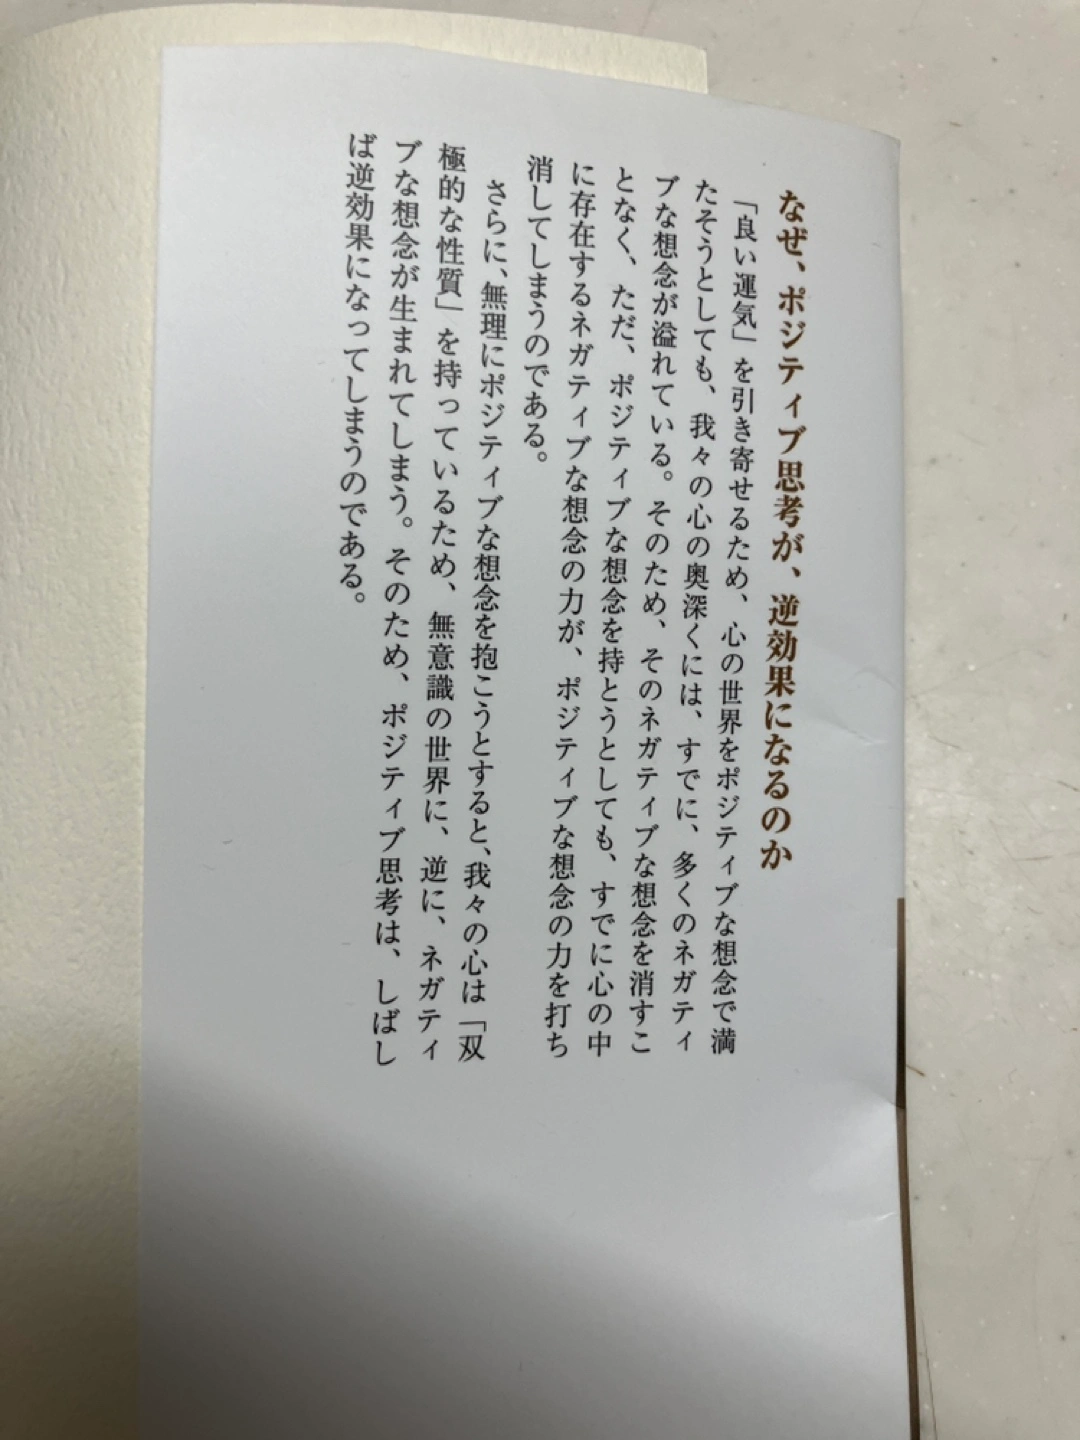 なぜ、ポジティブ思考が、逆効果になるのか
「良い運気」を引き寄せるため、心の世界をポジティブな想念で満
たそうとしても、我々の心の奥深くには、すでに、多くのネガティ
ブな想念が溢れている。そのため、そのネガティブな想念を消すこ
となく、ただ、ポジティブな想念を持とうとしても、すでに心の中
に存在するネガティブな想念の力が、ポジティブな想念の力を打ち
消してしまうのである。
さらに、無理にポジティブな想念を抱こうとすると、我々の心は「双
極的な性質」を持っているため、無意識の世界に、逆に、ネガティ
ブな想念が生まれてしまう。そのため、ポジティブ思考は、しばし
ば逆効果になってしまうのである。